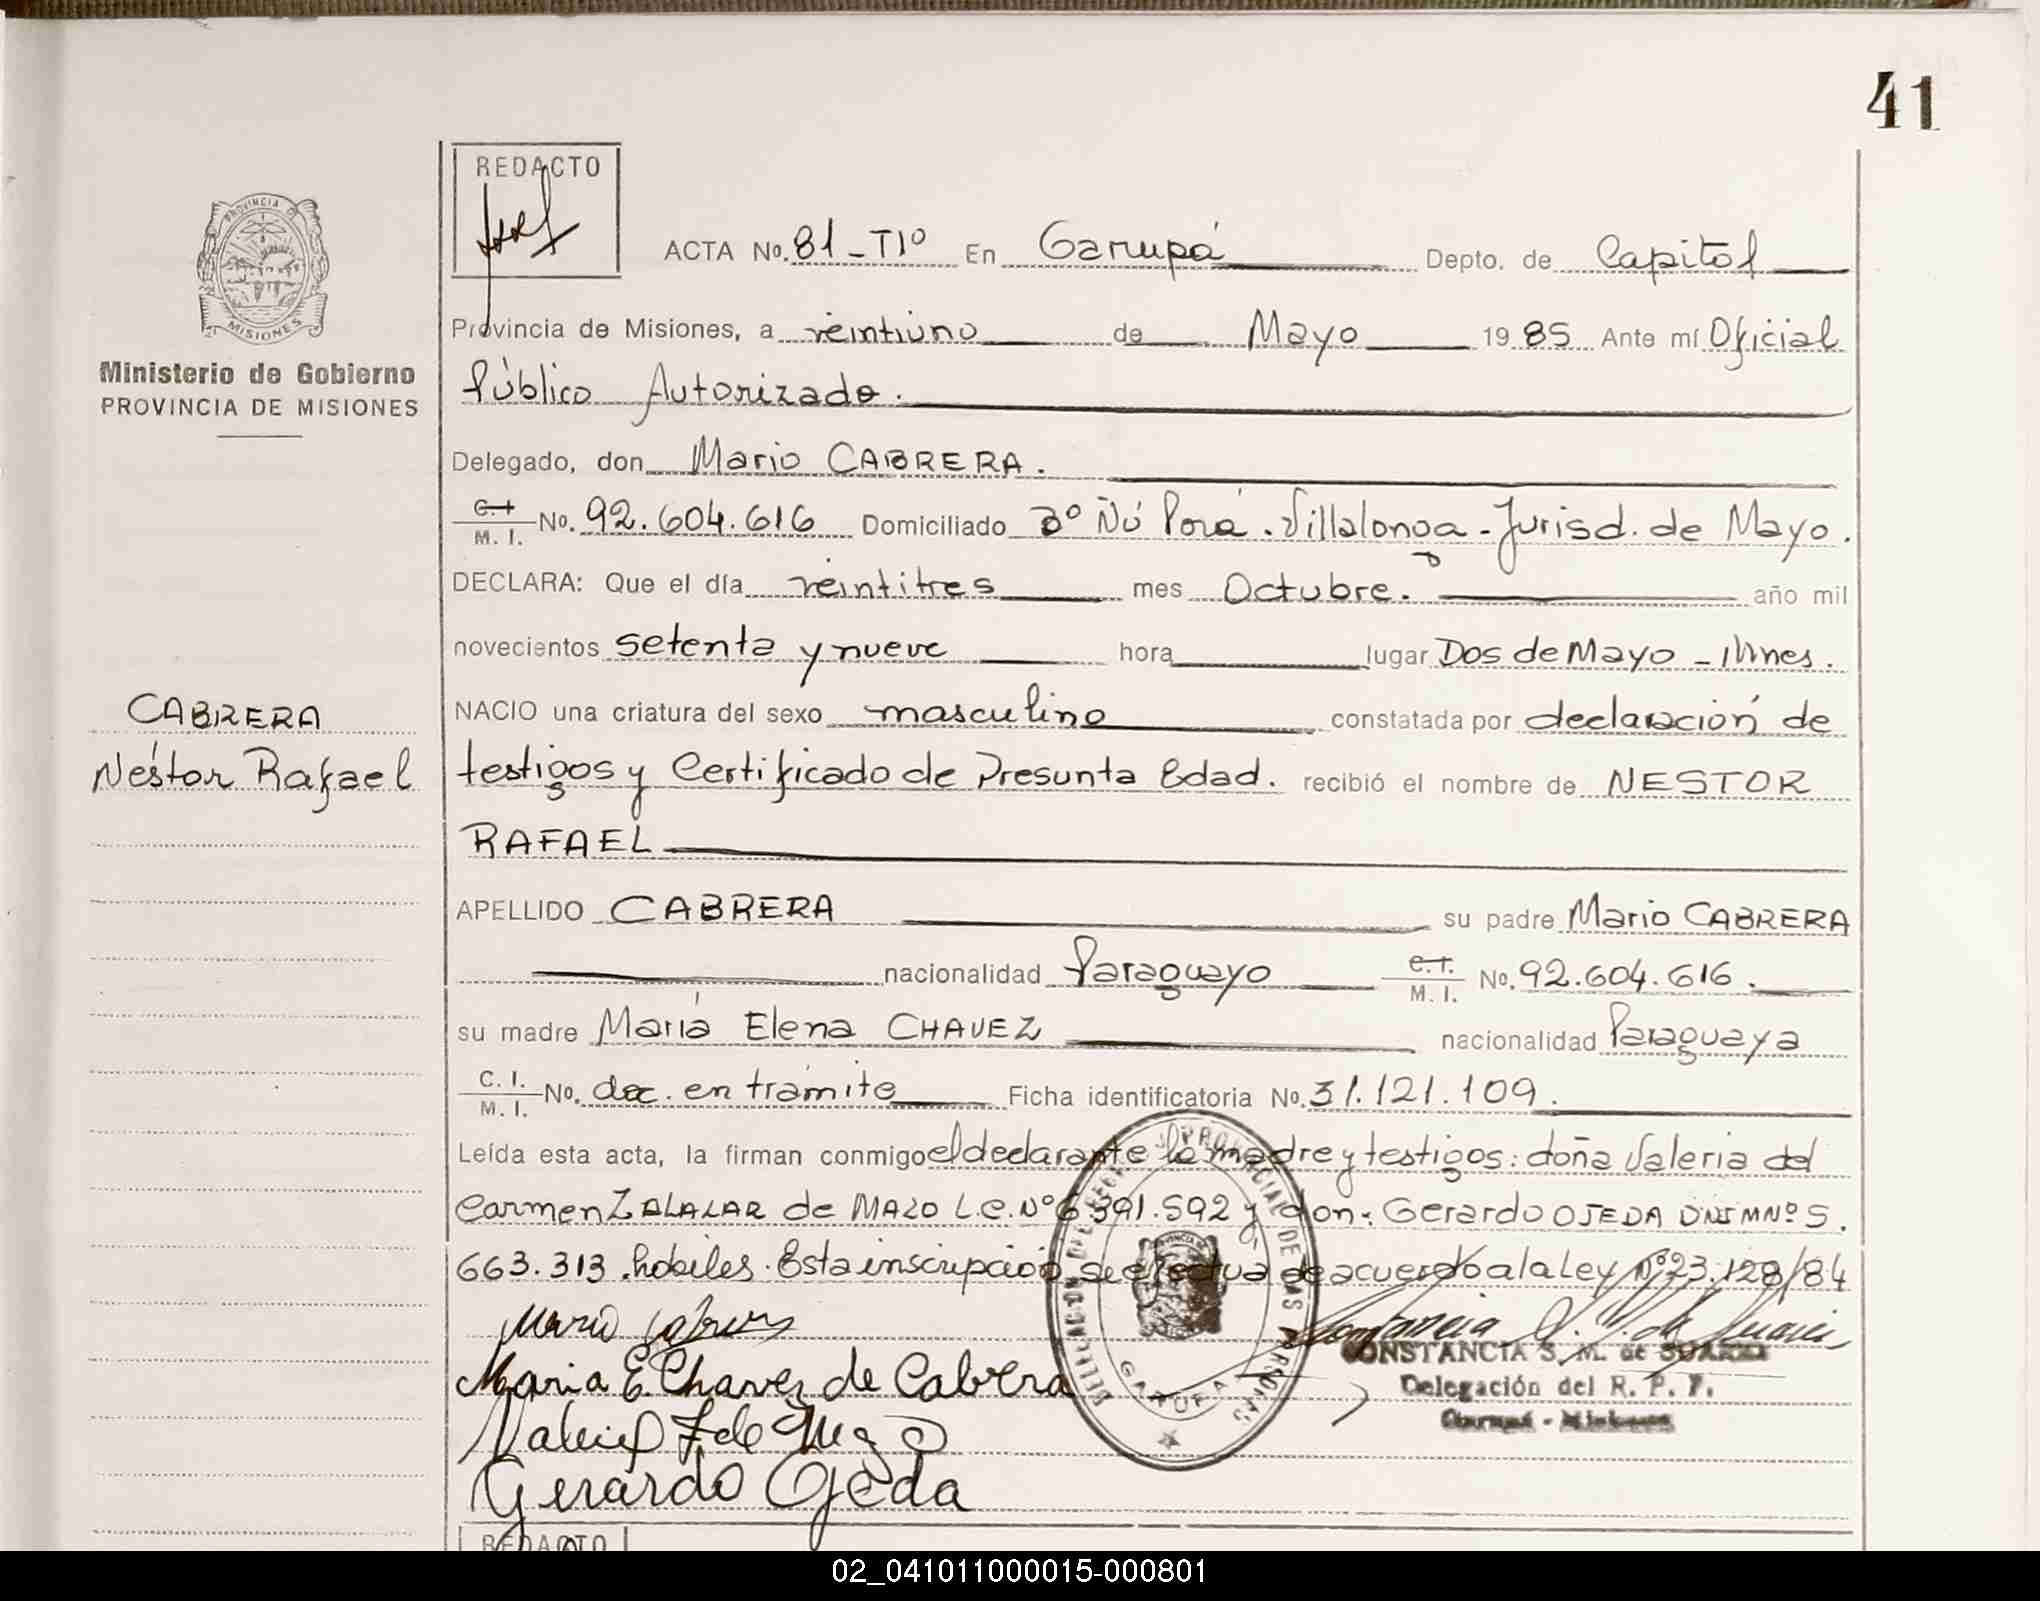 41
REDACTO
PROVINCIA DE
MISIONES
Ministerio de Gobierno
PROVINCIA DE MISIONES
ACTA No. 81 - TIº En Garupá Depto. de Capital
Provincia de Misiones, a veintiuno de Mayo 1985 Ante mí Oficial
Público Autorizado.
Delegado, don Mario CABRERA.
C.I. M. I. No. 92.604.616 Domiciliado Bº Ñú Porá. Villalonga - Jurisd. de Mayo.
DECLARA: Que el día veintitres mes Octubre. año mil
novecientos setenta y nueve hora lugar Dos de Mayo - Mnes.
NACIO una criatura del sexo masculino constatada por declaración de
testigos y Certificado de Presunta Edad. recibió el nombre de NESTOR
RAFAEL
CABRERA
Néstor Rafael
APELLIDO CABRERA su padre Mario CABRERA
nacionalidad Paraguayo C.I. M. I. No. 92.604.616.
su madre María Elena CHAVEZ nacionalidad Paraguaya
C. I. M. I. No. doc. en trámite Ficha identificatoria No. 31.121.109.
Leída esta acta, la firman conmigo el declarante la madre y testigos: doña Valeria del
Carmen ZALALAR de MAZO L.C. Nº 6 391.592 y don: Gerardo OJEDA DNI M Nº 5.
663.313. hábiles. Esta inscripción se efectua de acuerdo a la Ley Nº 23.128/84
Mario Cabrera
Maria E. Chavez de Cabrera
Gerardo Ojeda
PROVINCIAL DE LAS PERSONAS
DELEGACION
GARUPA
CONSTANCIA S. M. de SUAREZ
Delegación del R. P. P.
Garupá - Misiones
REDACTO
02_041011000015-000801